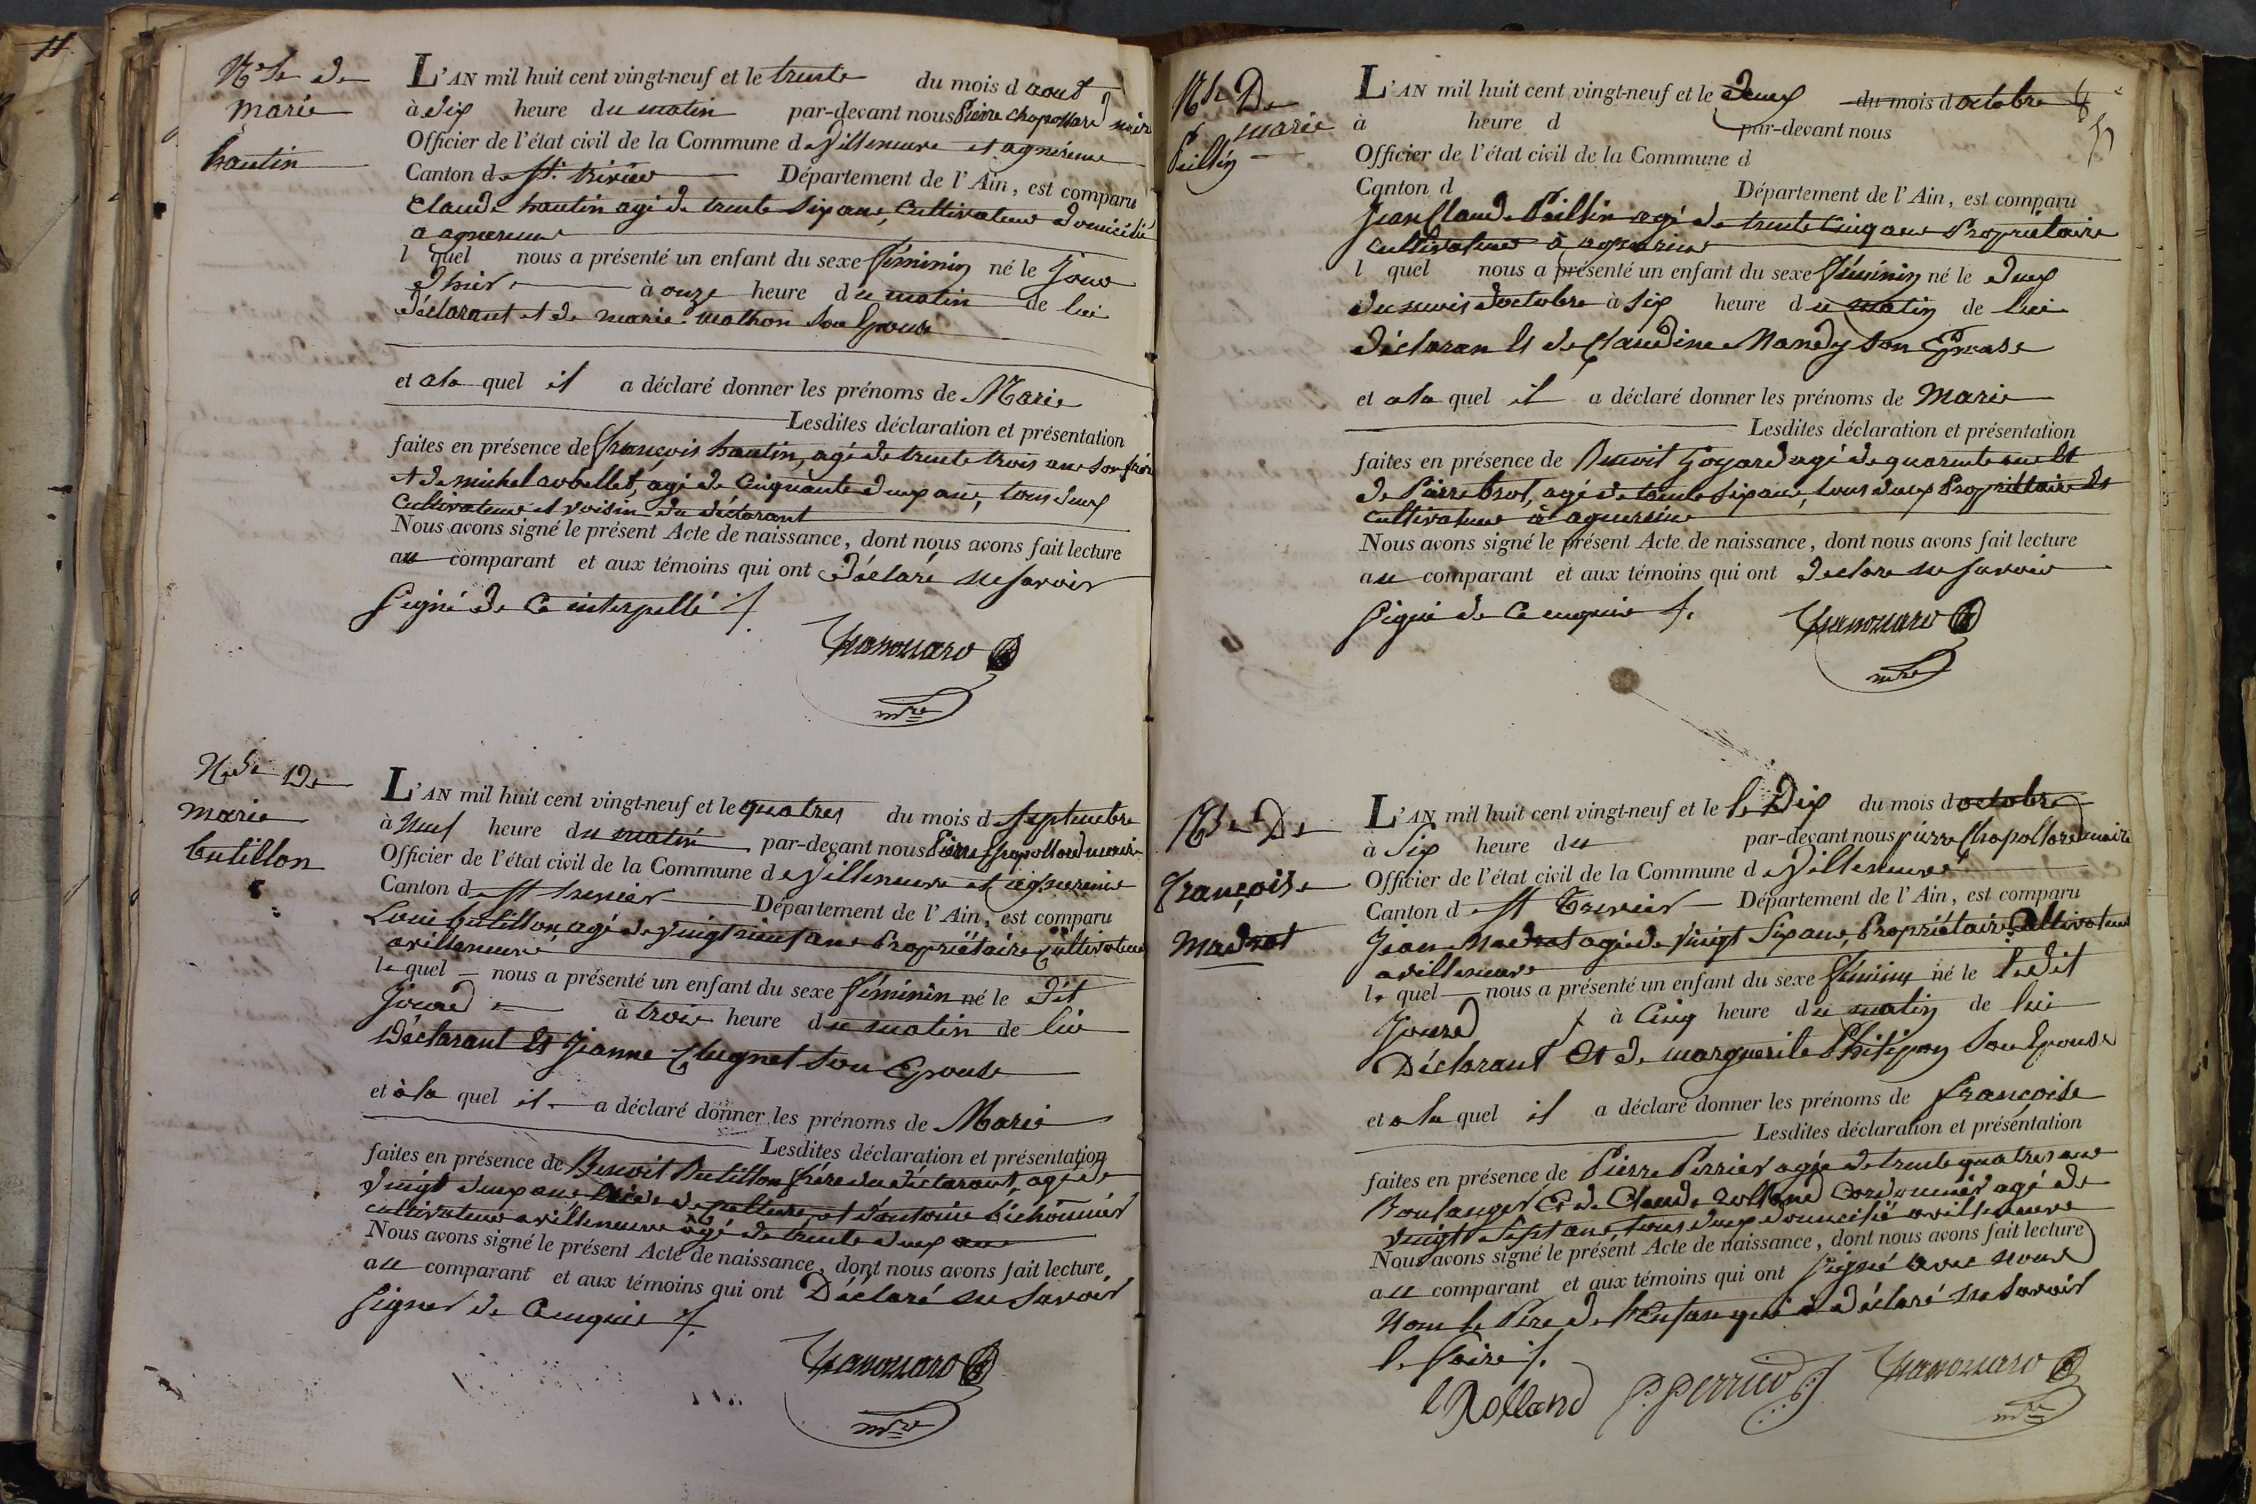 11
Nce de
marie
hautin
L'AN mil huit cent vingt-neuf et le trente du mois d aout
à dix heure du matin par-devant nous Pierre chapottard maire
Officier de l'état civil de la Commune de Villeneuve et agnereins
Canton de St. trivier Département de l'Ain, est comparu
Claude hautin agé de trente six ans, Cultivateur domicilié
a agnereins
l quel nous a présenté un enfant du sexe féminin né le Jour
d'hier à onze heure du matin de lui
déclarant et de marie mathon son Epouse
et a la quel il a déclaré donner les prénoms de Marie
Lesdites déclaration et présentation
faites en présence de françois hautin, agé de trente trois ans son frère
et de michel arbellet, agé de Cinquante deux ans, tous deux
Cultivateur et voisin du déclarant
Nous avons signé le présent Acte de naissance, dont nous avons fait lecture
au comparant et aux témoins qui ont déclaré ne savoir
signé de ce interpellé
mre
Nce De
marie
butillon
L'AN mil huit cent vingt-neuf et le quatres du mois de septembre
à Neuf heure du matin par-devant nous Pierre Chapottard maire
Officier de l'état civil de la Commune de Villeneuve et agnereins
Canton de St trivier Département de l'Ain, est comparu
Loui butillon agé de vingt neuf ans Propriétaire Cultivateur
a villeneuve
le quel nous a présenté un enfant du sexe féminin né le dit
Jour à trois heure du matin de lui
Déclarant Et Jeanne Clugnet son Epouse
et à la quel il a déclaré donner les prénoms de Marie
Lesdites déclaration et présentation
faites en présence de Benoit Butillon frère du déclarant, agé de
vingt deux ans et d'antoine bichonnier
cultivateur a villeneuve agé de trente deux ans
Nous avons signé le présent Acte de naissance, dont nous avons fait lecture
au comparant et aux témoins qui ont Déclaré ne savoir
signer de ce enquis
mre
Nce De
marie
Peillin
L'AN mil huit cent vingt-neuf et le deux du mois d octobre
à heure d par-devant nous
Officier de l'état civil de la Commune d
Canton d Département de l'Ain, est comparu
Jean Claude Peillin agé de trente Cinq ans Propriétaire
cultivateur à agnereins
l quel nous a présenté un enfant du sexe féminin né le deux
du mois doctobre à six heure du matin de lui
déclaran Et de Claudine Mandy son Epouse
et a la quel il a déclaré donner les prénoms de Marie
Lesdites déclaration et présentation
faites en présence de Benoit Goyard agé de quarente ans Et
de Pierre brot, agé de trente six ans, tous deux Propriétaire Et
cultivateur à agnereins
Nous avons signé le présent Acte de naissance, dont nous avons fait lecture
au comparant et aux témoins qui ont declare ne savoir
signé de ce enquis
mre
Nce De
françoise
Madrat
L'AN mil huit cent vingt-neuf et le le Dix du mois d octobre
à Six heure du par-devant nous pierre Chapottard maire
Officier de l'état civil de la Commune de Villeneuve
Canton de St Trivier Département de l'Ain, est comparu
Jean Madrat agé de vingt Six ans, Propriétaire Cultivateur
a villeneuve
le quel nous a présenté un enfant du sexe féminin né le Ledit
Jour à Cinq heure du matin de lui
Déclarant Et de marguerite Philipon son Epouse
et a la quel il a déclaré donner les prénoms de françoise
Lesdites déclaration et présentation
faites en présence de Pierre Perrier agée de trente quatres ans
Boulanger Et de Claude rolland Cordonnier agé de
vingt Sept ans, tous deux domicilié a villeneuve
Nous avons signé le présent Acte de naissance, dont nous avons fait lecture
au comparant et aux témoins qui ont signé avec nous
Nom le Père de l'enfan qui a déclaré ne savoir
le faire
Rolland P. Perrier
mre